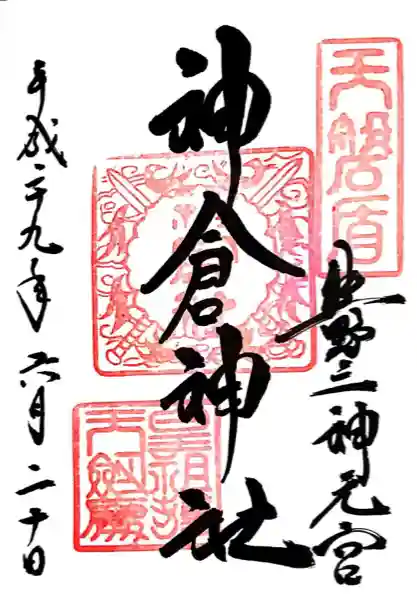 天磐盾
熊野三神元宮
神倉神社
平成二九年六月二十日